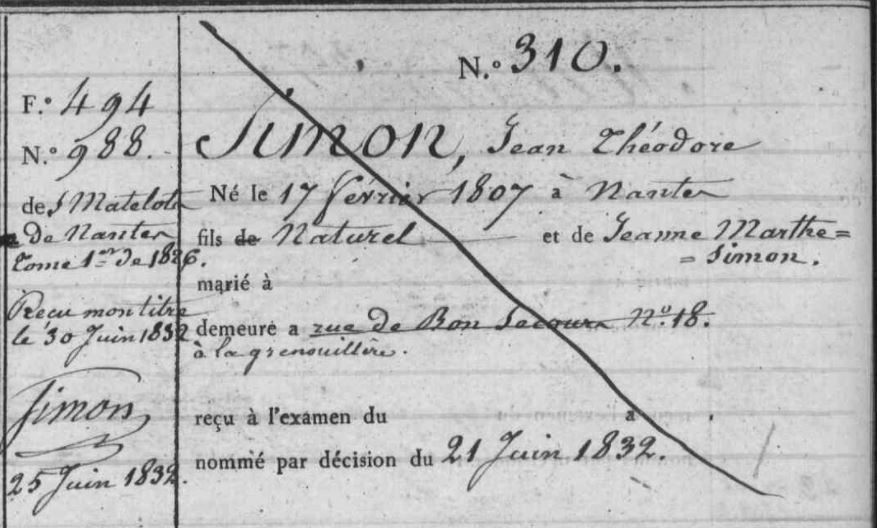 F.º 494
N.º 988.
des Matelots
de Nantes
Tome 1er de 1826.
Reçu mon titre
le 30 Juin 1832
Simon
25 Juin 1832.
N.º 310.
Simon, Jean Théodore
Né le 17 février 1807 à Nantes
fils de Naturel et de Jeanne Marthe=
=Simon.
marié à
demeure a rue de Bon Secours Nº. 18.
à la grenouillère.
reçu à l'examen du a
nommé par décision du 21 Juin 1832.